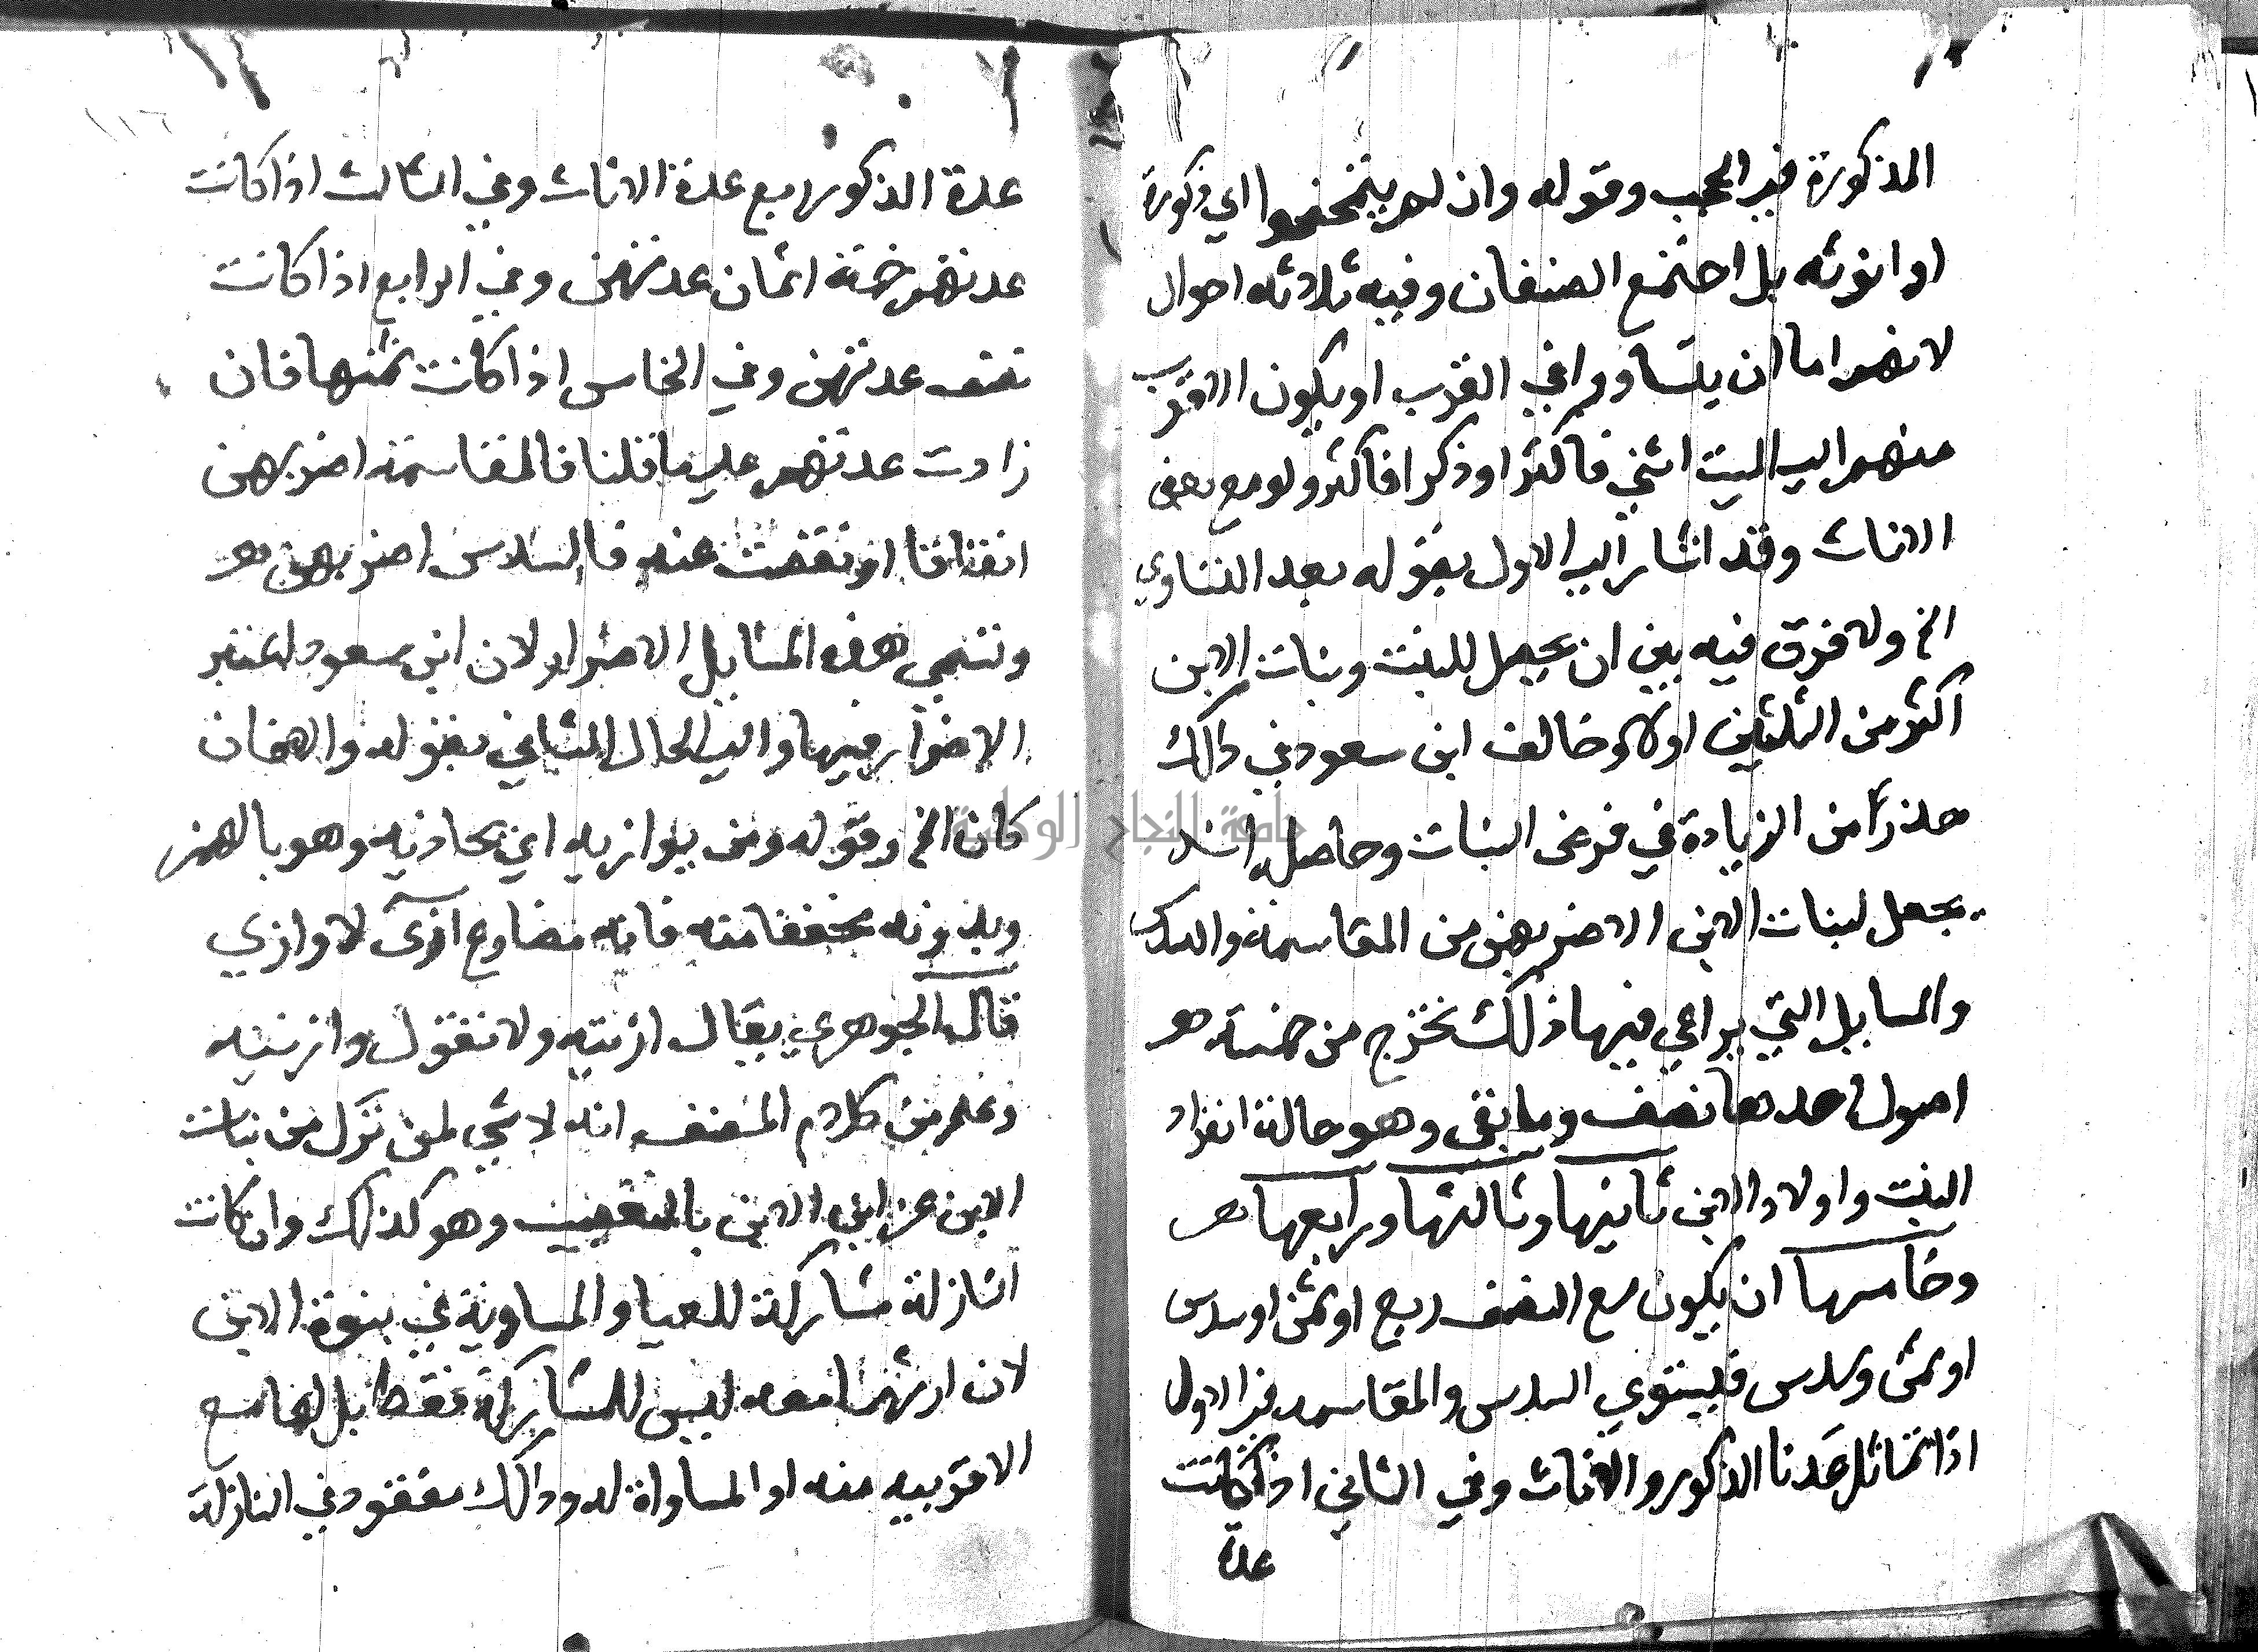 المذكورة في الحجب وقوله وان لم يتمحضوا اي ذكورة
او انوثه بل اجتمع الصنفان وفيه ثلاثه احوال
لانهم اما ان يتساووا في القرب او يكون الاقرب
منهم الي الميت انثي فاكثر او ذكرا فاكثر ولو مع بعض
الاناث وقد اشار الي الاول بقوله بعد التساوي
الخ ولا فرق فيه بين ان يحصل للبنت وبنات الابن
اكثر من الثلثين اولا وخالف ابن مسعود في ذالك
حذرا من الزيادة في فرض البنات وحاصله انه
يجعل لبنات الابن الاضر بهن من المقاسمة والسدس
والمسايل التي يراعي فيها ذلك تخرج من خمسة
اصول احدها نصف وما بقي وهو حالة انفراد
البنت واولاد الابن ثانيها وثالثها ورابعها
وخامسها ان يكون مع النصف ربع او ثمن او سدس
او ثمن وسدس فيستوي السدس والمقاسمه في الاول
اذا تماثل عدتا الذكور والاناث وفي الثاني اذا كانت
عدة
عدة الذكور ربع عدة الاناث وفي الثالث اذا كانت
عدتهم خمسة اثمان عدتهن وفي الرابع اذا كانت
نصف عدتهن وفي الخامس اذا كانت ثمنها فان
زادت عدتهم علي ما قلنا فالمقاسمة اضر بهن
اتفاقا او نقصت عنه فالسدس اضر بهن
وتسمي هذه المسايل الاضرار لان ابن مسعود اعتبر
الاضرار فيها والي الحال الثاني بقوله والا فان
كان الخ وقوله ومن يوازيه اي يحاذيه وهو بالهمز
وبدونه مخففا منه فانه مضارع آزي لا وازي
قال الجوهري يقال ازيته ولا تقول وازيته
وعلم من كلام المصنف انه لا شي لمن نزل من بنات
الابن عن ابن الابن بالتعصيب وهو كذلك وان كانت
النازلة مشاركة للعليا والمساوية في بنوة الابن
لان ارثهما معه ليس للمشاركة فقط بل لها مع
الاقربيه منه او المساواة له وذالك مفقود في النازلة
جامعة النجاح الوطنية